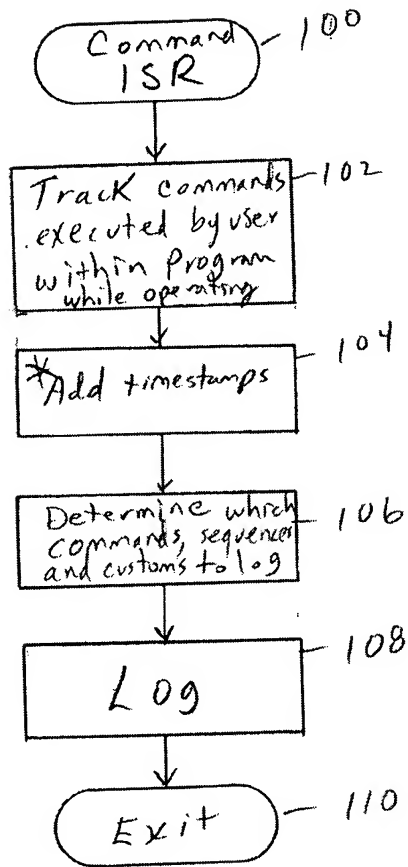 Command
ISR
100
Track commands
executed by user
within Program
while operating
102
*Add timestamps
104
Determine which
commands, sequences
and customs to log
106
Log
108
Exit
110